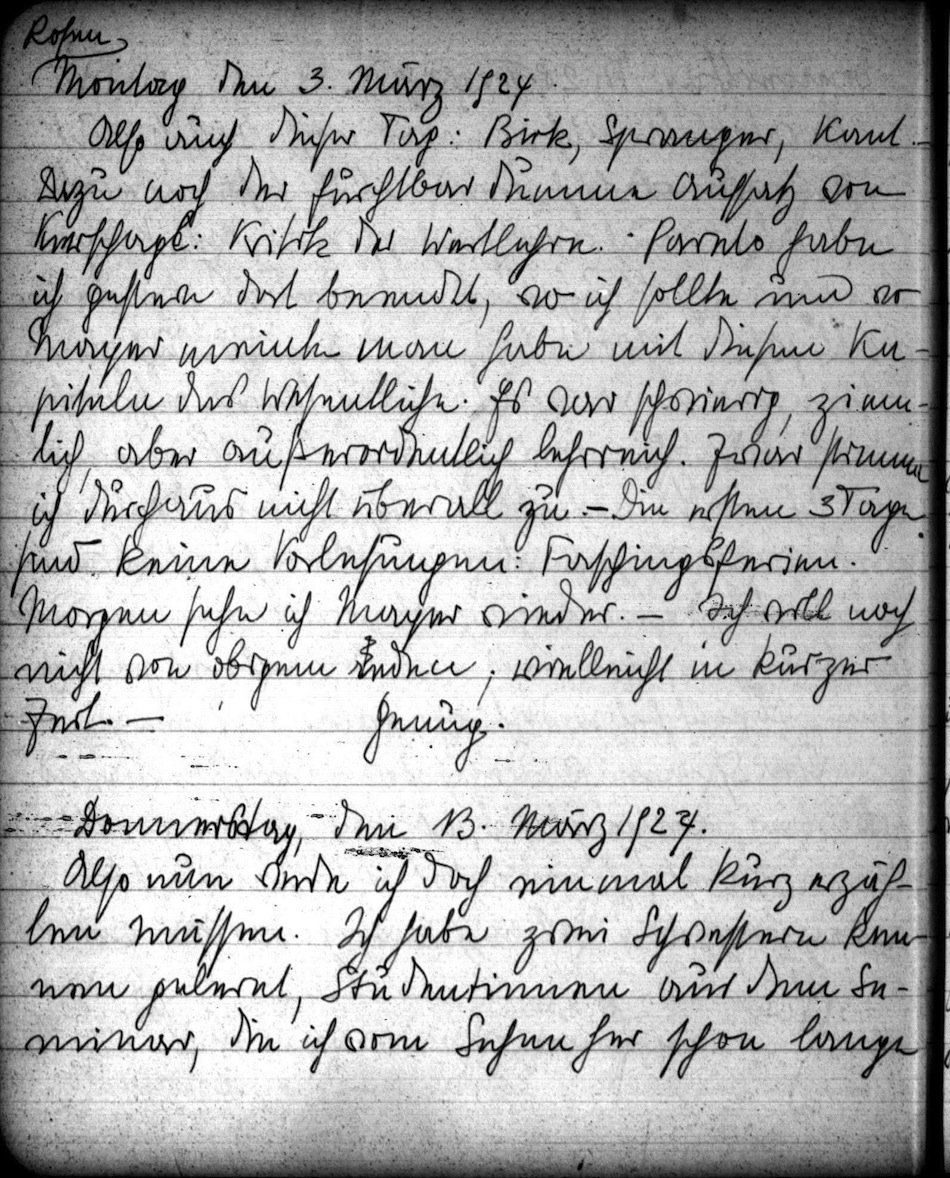 Rosen
Montag den 3. März 1924
Also auch dieser Tag: Birk, Spranger, Kant. –
Dazu noch der furchtbar dumme Aufsatz von
Kerschagl: Kritik der Wertlehre. – Pareto habe
ich gestern dort beendet, wo ich sollte und wo
Mayer meinte man habe mit diesen Ka-
piteln das Wesentliche. Es war schwierig, ziem-
lich, aber außerordentlich lehrreich. Zwar stimme
ich durchaus nicht überall zu. – Die ersten 3 Tage
sind keine Vorlesungen: Faschingsferien.
Morgen sehe ich Mayer wieder. – Ich will noch
nicht von obigem reden; vielleicht in kurzer
Zeit. – Genug.
Donnerstag, den 13. März 1924.
Also nun werde ich doch einmal kurz erzäh-
len müssen. Ich habe zwei Schwestern ken-
nen gelernt, Studentinnen aus dem Se-
minar, die ich vom Sehen her schon lange